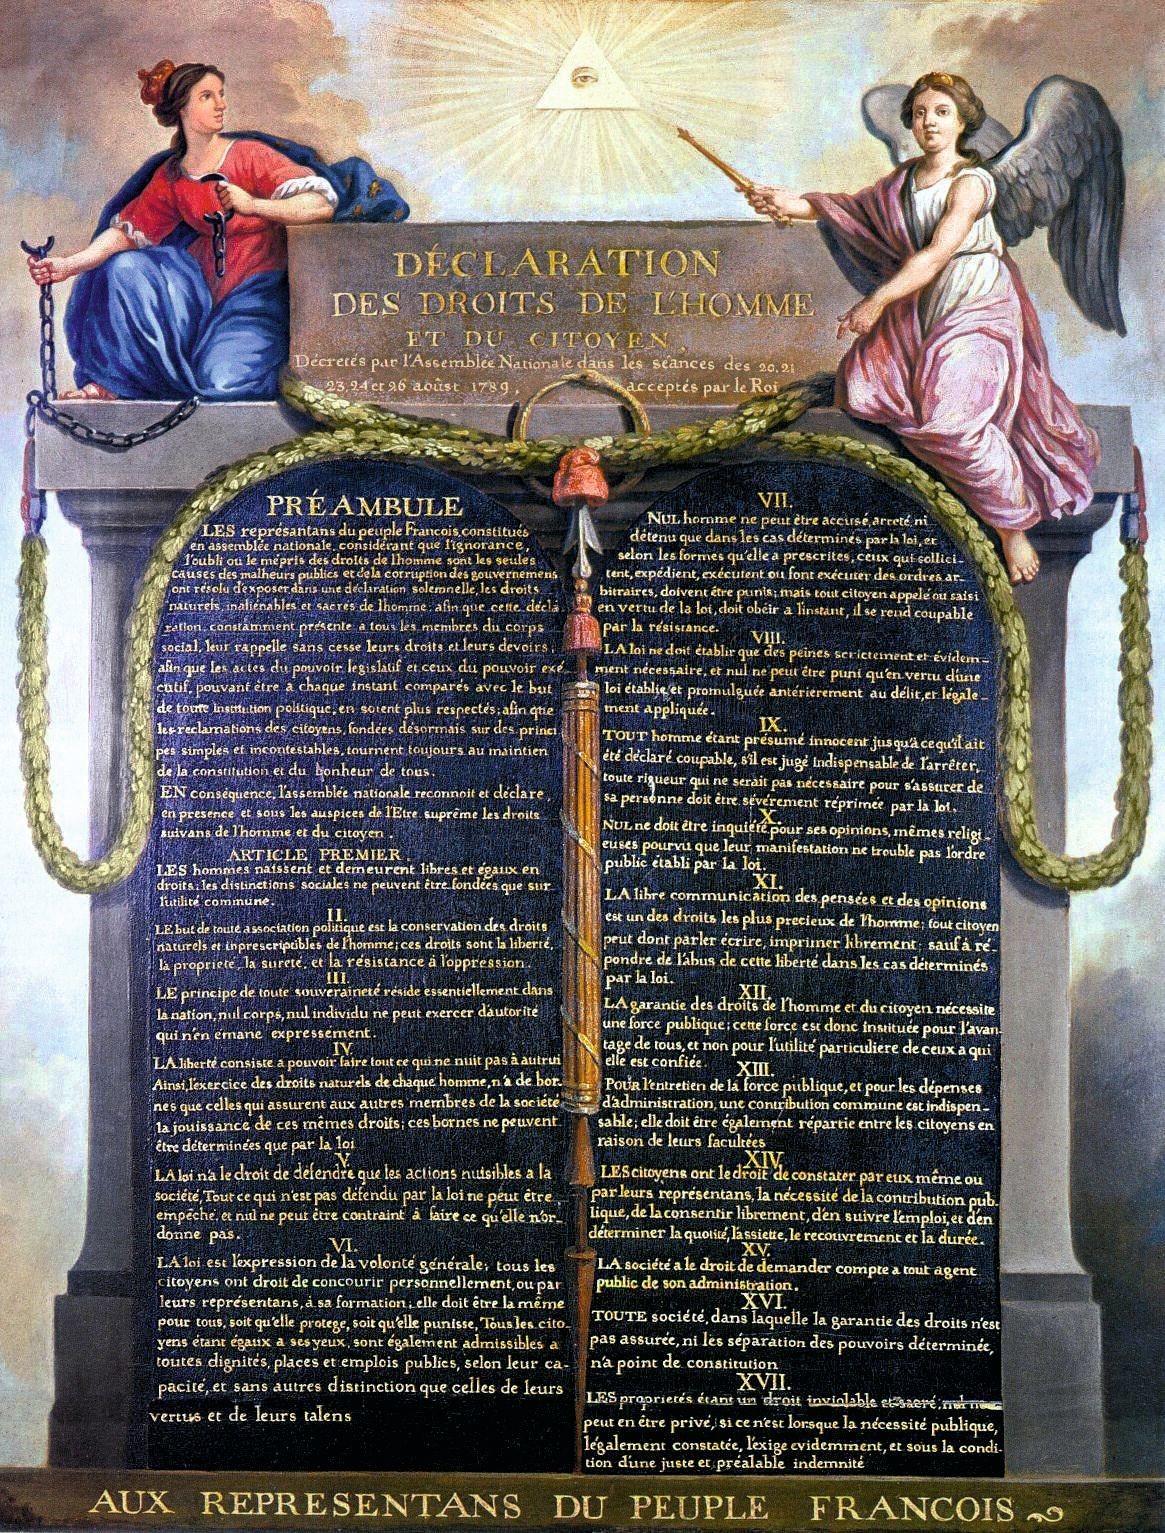 DÉCLARATION
DES DROITS DE L'HOMME
ET DU CITOYEN,
Décretés par l'Assemblée Nationale dans les séances des 20, 21
23, 24 et 26 août 1789, acceptés par le Roi
PRÉAMBULE
LES représantans du peuple Francois, constitués
en assemblée nationale, considérant que l'ignorance,
l'oubli ou le mépris des droits de l'homme sont les seules
causes des malheurs publics et de la corruption des gouvernemens
ont résolu d'exposer dans une déclaration solemnelle, les droits
naturels, inaliénables et sacrés de l'homme; afin que cette décla
ration, constamment présente a tous les membres du corps
social, leur rappelle sans cesse leurs droits et leurs devoirs;
afin que les actes du pouvoir législatif et ceux du pouvoir exé
cutif, pouvant être à chaque instant comparés avec le but
de toute institution politique, en soient plus respectés; afin que
les reclamations des citoyens, fondées désormais sur des princi
pes simples et incontestables, tournent toujours au maintien
de la constitution et du bonheur de tous.
EN conséquence, l'assemblée nationale reconnoit et déclare,
en presence et sous les auspices de l'Etre suprême les droits
suivans de l'homme et du citoyen.
ARTICLE PREMIER.
LES hommes naissent et demeurent libres et égaux en
droits; les distinctions sociales ne peuvent être fondées que sur
l'utilité commune.
II.
LE but de toute association politique est la conservation des droits
naturels et inprescriptibles de l'homme; ces droits sont la liberté,
la propriété, la sureté, et la résistance à l'oppression.
III.
LE principe de toute souveraineté réside essentiellement dans
la nation, nul corps, nul individu ne peut exercer d'autorité
qui n'en emane expressement.
IV.
LA liberté consiste a pouvoir faire tout ce qui ne nuit pas à autrui
Ainsi, l'exercice des droits naturels de chaque homme, n'a de bor-
nes que celles qui assurent aux autres membres de la société
la jouissance de ces mêmes droits; ces bornes ne peuvent
être déterminées que par la loi
V.
LA loi n'a le droit de défendre que les actions nuisibles a la
société, Tout ce qui n'est pas défendu par la loi ne peut être
empêché, et nul ne peut être contraint à faire ce qu'elle n'or-
donne pas.
VI.
LA loi est l'expression de la volonté générale; tous les
citoyens ont droit de concourir personnellement, ou par
leurs représentans, à sa formation; elle doit être la même
pour tous, soit qu'elle protege, soit qu'elle punisse, Tous les cito-
yens étant égaux a ses yeux, sont également admissibles a
toutes dignités, places et emplois publics, selon leur ca-
pacité, et sans autres distinction que celles de leurs
vertus et de leurs talens
VII.
NUL homme ne peut être accusé, arreté, ni
détenu que dans les cas déterminés par la loi, et
selon les formes qu'elle a prescrites, ceux qui sollici-
tent, expédient, exécutent ou font exécuter des ordres ar-
bitraires, doivent être punis; mais tout citoyen appelé ou saisi
en vertu de la loi, doit obéir a l'instant, il se rend coupable
par la résistance.
VIII.
LA loi ne doit établir que des peines strictement et évidem-
ment nécessaire, et nul ne peut être puni qu'en vertu d'une
loi établie, et promulguée antérierement au délit, et légale-
ment appliquée.
IX.
TOUT homme étant présumé innocent jusqu'à ce qu'il ait
été déclaré coupable, s'il est jugé indispensable de l'arrêter,
toute rigueur qui ne serait pas nécessaire pour s'assurer de
sa personne doit être sévèrement réprimée par la loi.
X.
NUL ne doit être inquiété pour ses opinions, mêmes religi-
euses pourvu que leur manifestation ne trouble pas l'ordre
public établi par la loi.
XI.
LA libre communication des pensées et des opinions
est un des droits les plus precieux de l'homme; tout citoyen
peut dont parler écrire, imprimer librement; sauf à ré-
pondre de l'abus de cette liberté dans les cas déterminés
par la loi.
XII.
LA garantie des droits de l'homme et du citoyen nécessite
une force publique; cette force est donc instituée pour l'avan-
tage de tous, et non pour l'utilité particuliere de ceux a qui
elle est confiée.
XIII.
POUR l'entretien de la force publique, et pour les dépenses
d'administration, une contribution commune est indispen-
sable; elle doit être également répartie entre les citoyens en
raison de leurs facultées
XIV.
LES citoyens ont le droit de constater par eux même ou
par leurs représentans, la nécessité de la contribution pub-
lique, de la consentir librement, d'en suivre l'emploi, et d'en
déterminer la quotité, l'assiette, le recouvrement et la durée.
XV.
LA société a le droit de demander compte a tout agent
public de son administration.
XVI.
TOUTE société, dans laquelle la garantie des droits n'est
pas assurée, ni les séparation des pouvoirs déterminée,
n'a point de constitution
XVII.
LES proprietés étant un droit inviolable et sacré, nul ne
peut en être privé, si ce n'est lorsque la nécessité publique,
légalement constatée, l'exige evidemment, et sous la condi-
tion d'une juste et préalable indemnité
AUX REPRESENTANS DU PEUPLE FRANCOIS